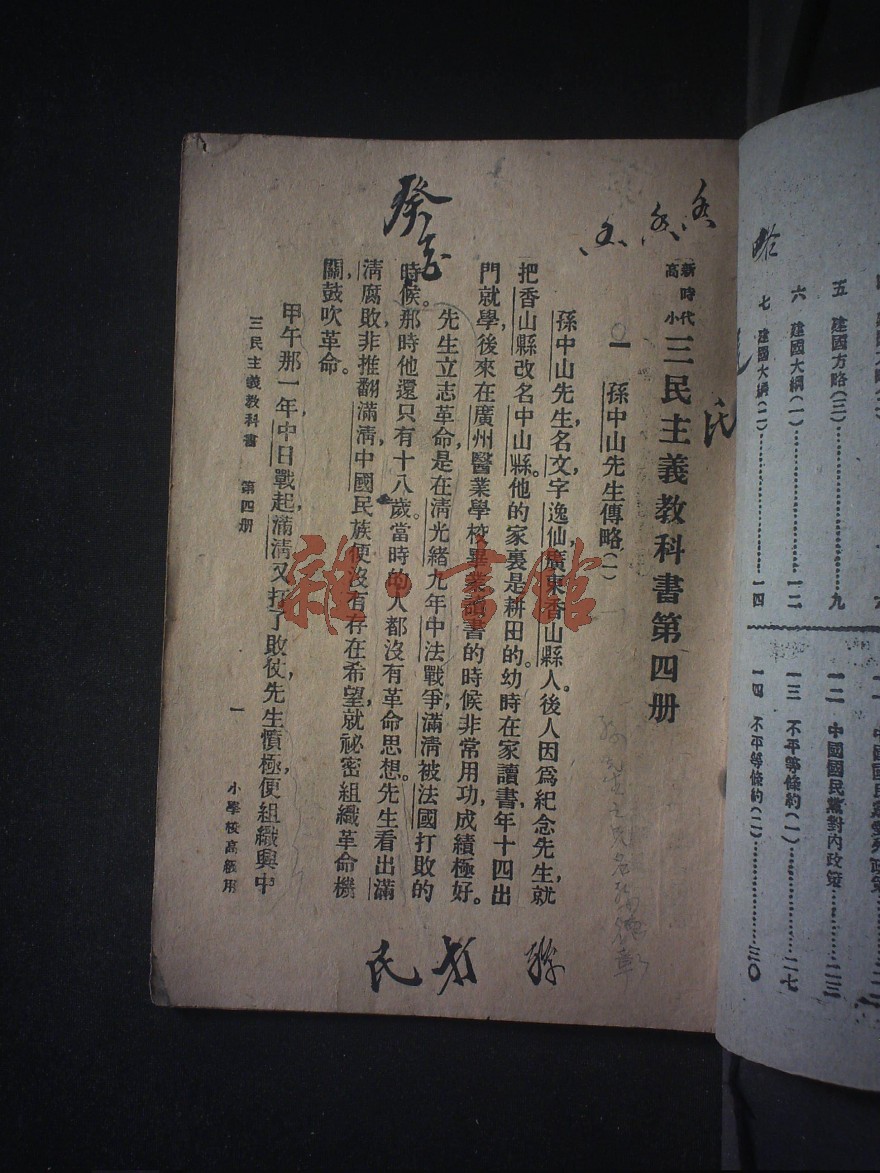 新時代
高小
三民主義教科書第四册
一 孫中山先生傳略(一)
孫中山先生,名文,字逸仙,廣東香山縣人。後人因爲紀念先生,就
把香山縣改名中山縣。他的家裏是耕田的,幼時在家讀書,年十四出
門就學,後來在廣州醫業學校畢業。讀書的時候非常用功,成績極好。
先生立志革命,是在淸光緒九年中法戰爭,滿淸被法國打敗的
時候。那時他還只有十八歲。當時的人都沒有革命思想。先生看出滿
淸腐敗,非推翻滿淸,中國民族便沒有存在希望,就祕密組織革命機
關,鼓吹革命。
甲午那一年,中日戰起,滿淸又打了敗仗,先生憤極,便組織興中
三民主義教科書 第四册 一 小學校高級用
五 建國方略(三)……九
六 建國大綱(一)……一二
七 建國大綱(二)……一四
一二 中國國民黨對内政策……二三
一三 不平等條約(一)……二七
一四 不平等條約(二)……三〇
癸
民
民
雜·書館